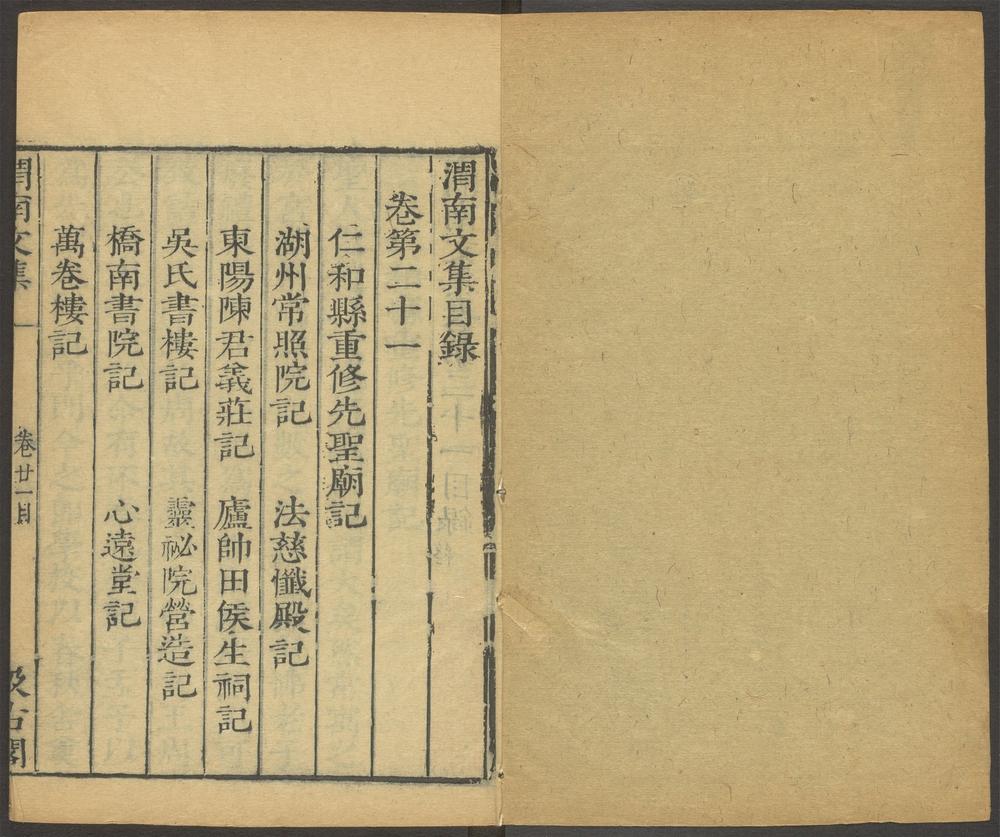 渭南文集目錄
卷第二十一
仁和縣重修先聖廟記
湖州常照院記 法慈懺殿記
東陽陳君義莊記 廬帥田侯生祠記
吳氏書樓記 靈祕院營造記
橋南書院記 心遠堂記
萬卷樓記
渭南文集 卷廿一目 汲古閣